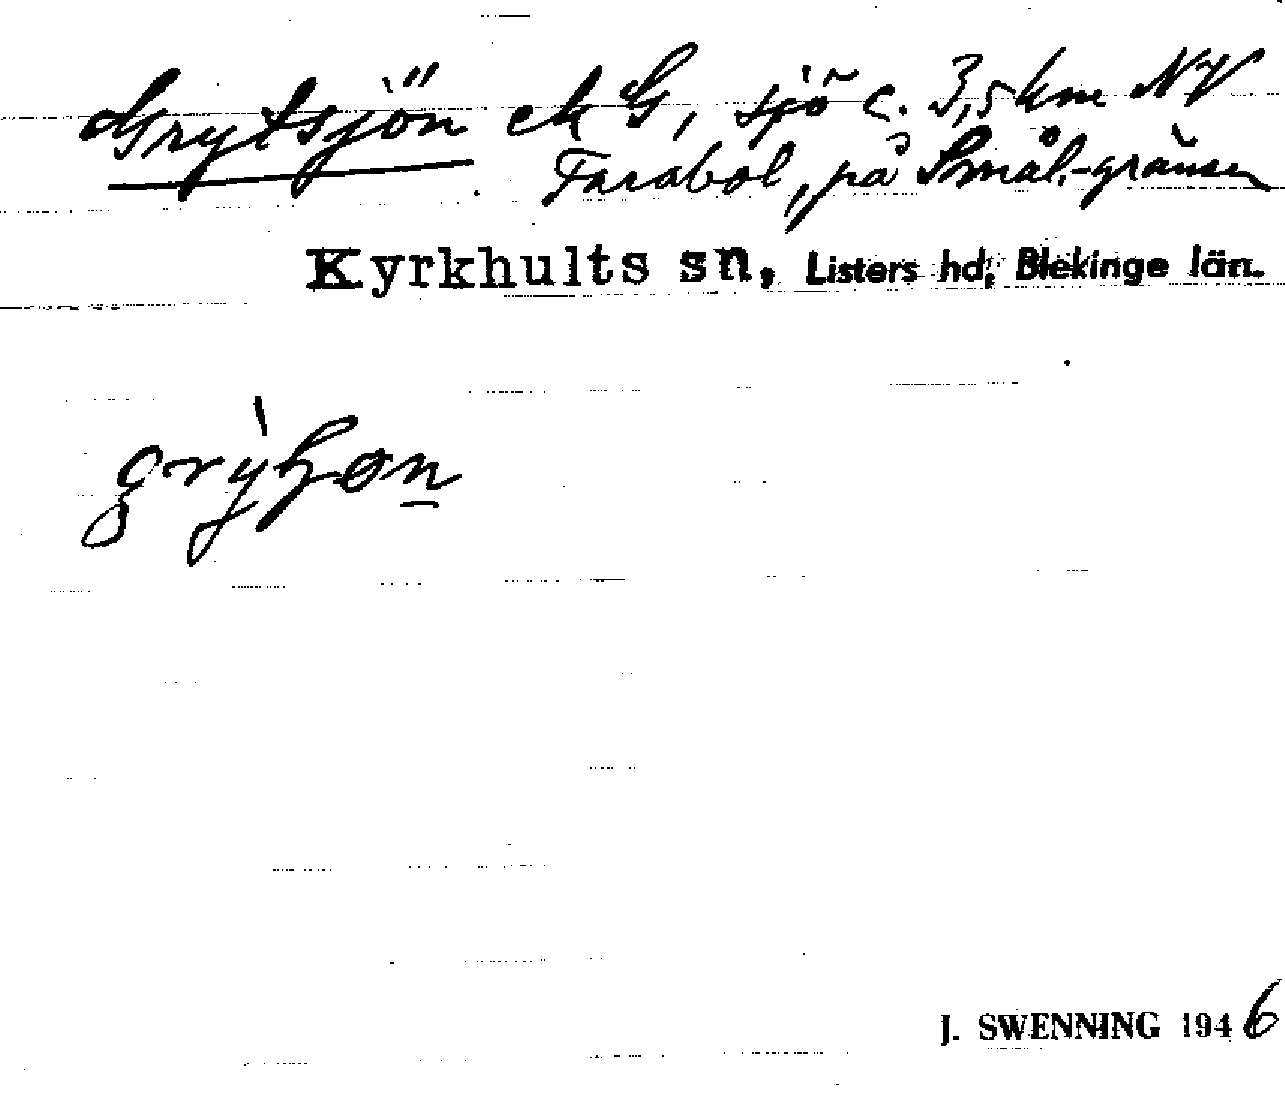 Grytsjön ek G, sjö c. 3,5 km NV
Farabol, på Smål.-gränsen
Kyrkhults sn, Listers hd, Blekinge län.
J. SWENNING 1946